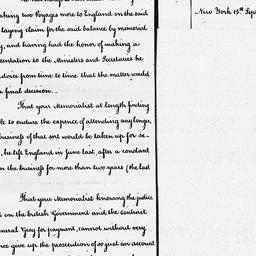 aking two Voyages more to England on the said
laying claim for the said balance by memorial
y, and having had the honor of making a
sentation to the Ministers and Secretaries he
dvice from time to time that the matter would
final decision.
That your Memorialist at length finding
le to endure the expence of attending any longer,
business of that sort would be taken up for se-
, he left England in June last, after a constant
n the business for more than two years (the last
That your Memorialist knowing the justice
d on the british Government and the contract
eneral Grey for payment, cannot without very
nce give up the prosecution of so just an account
New York 15th Sep